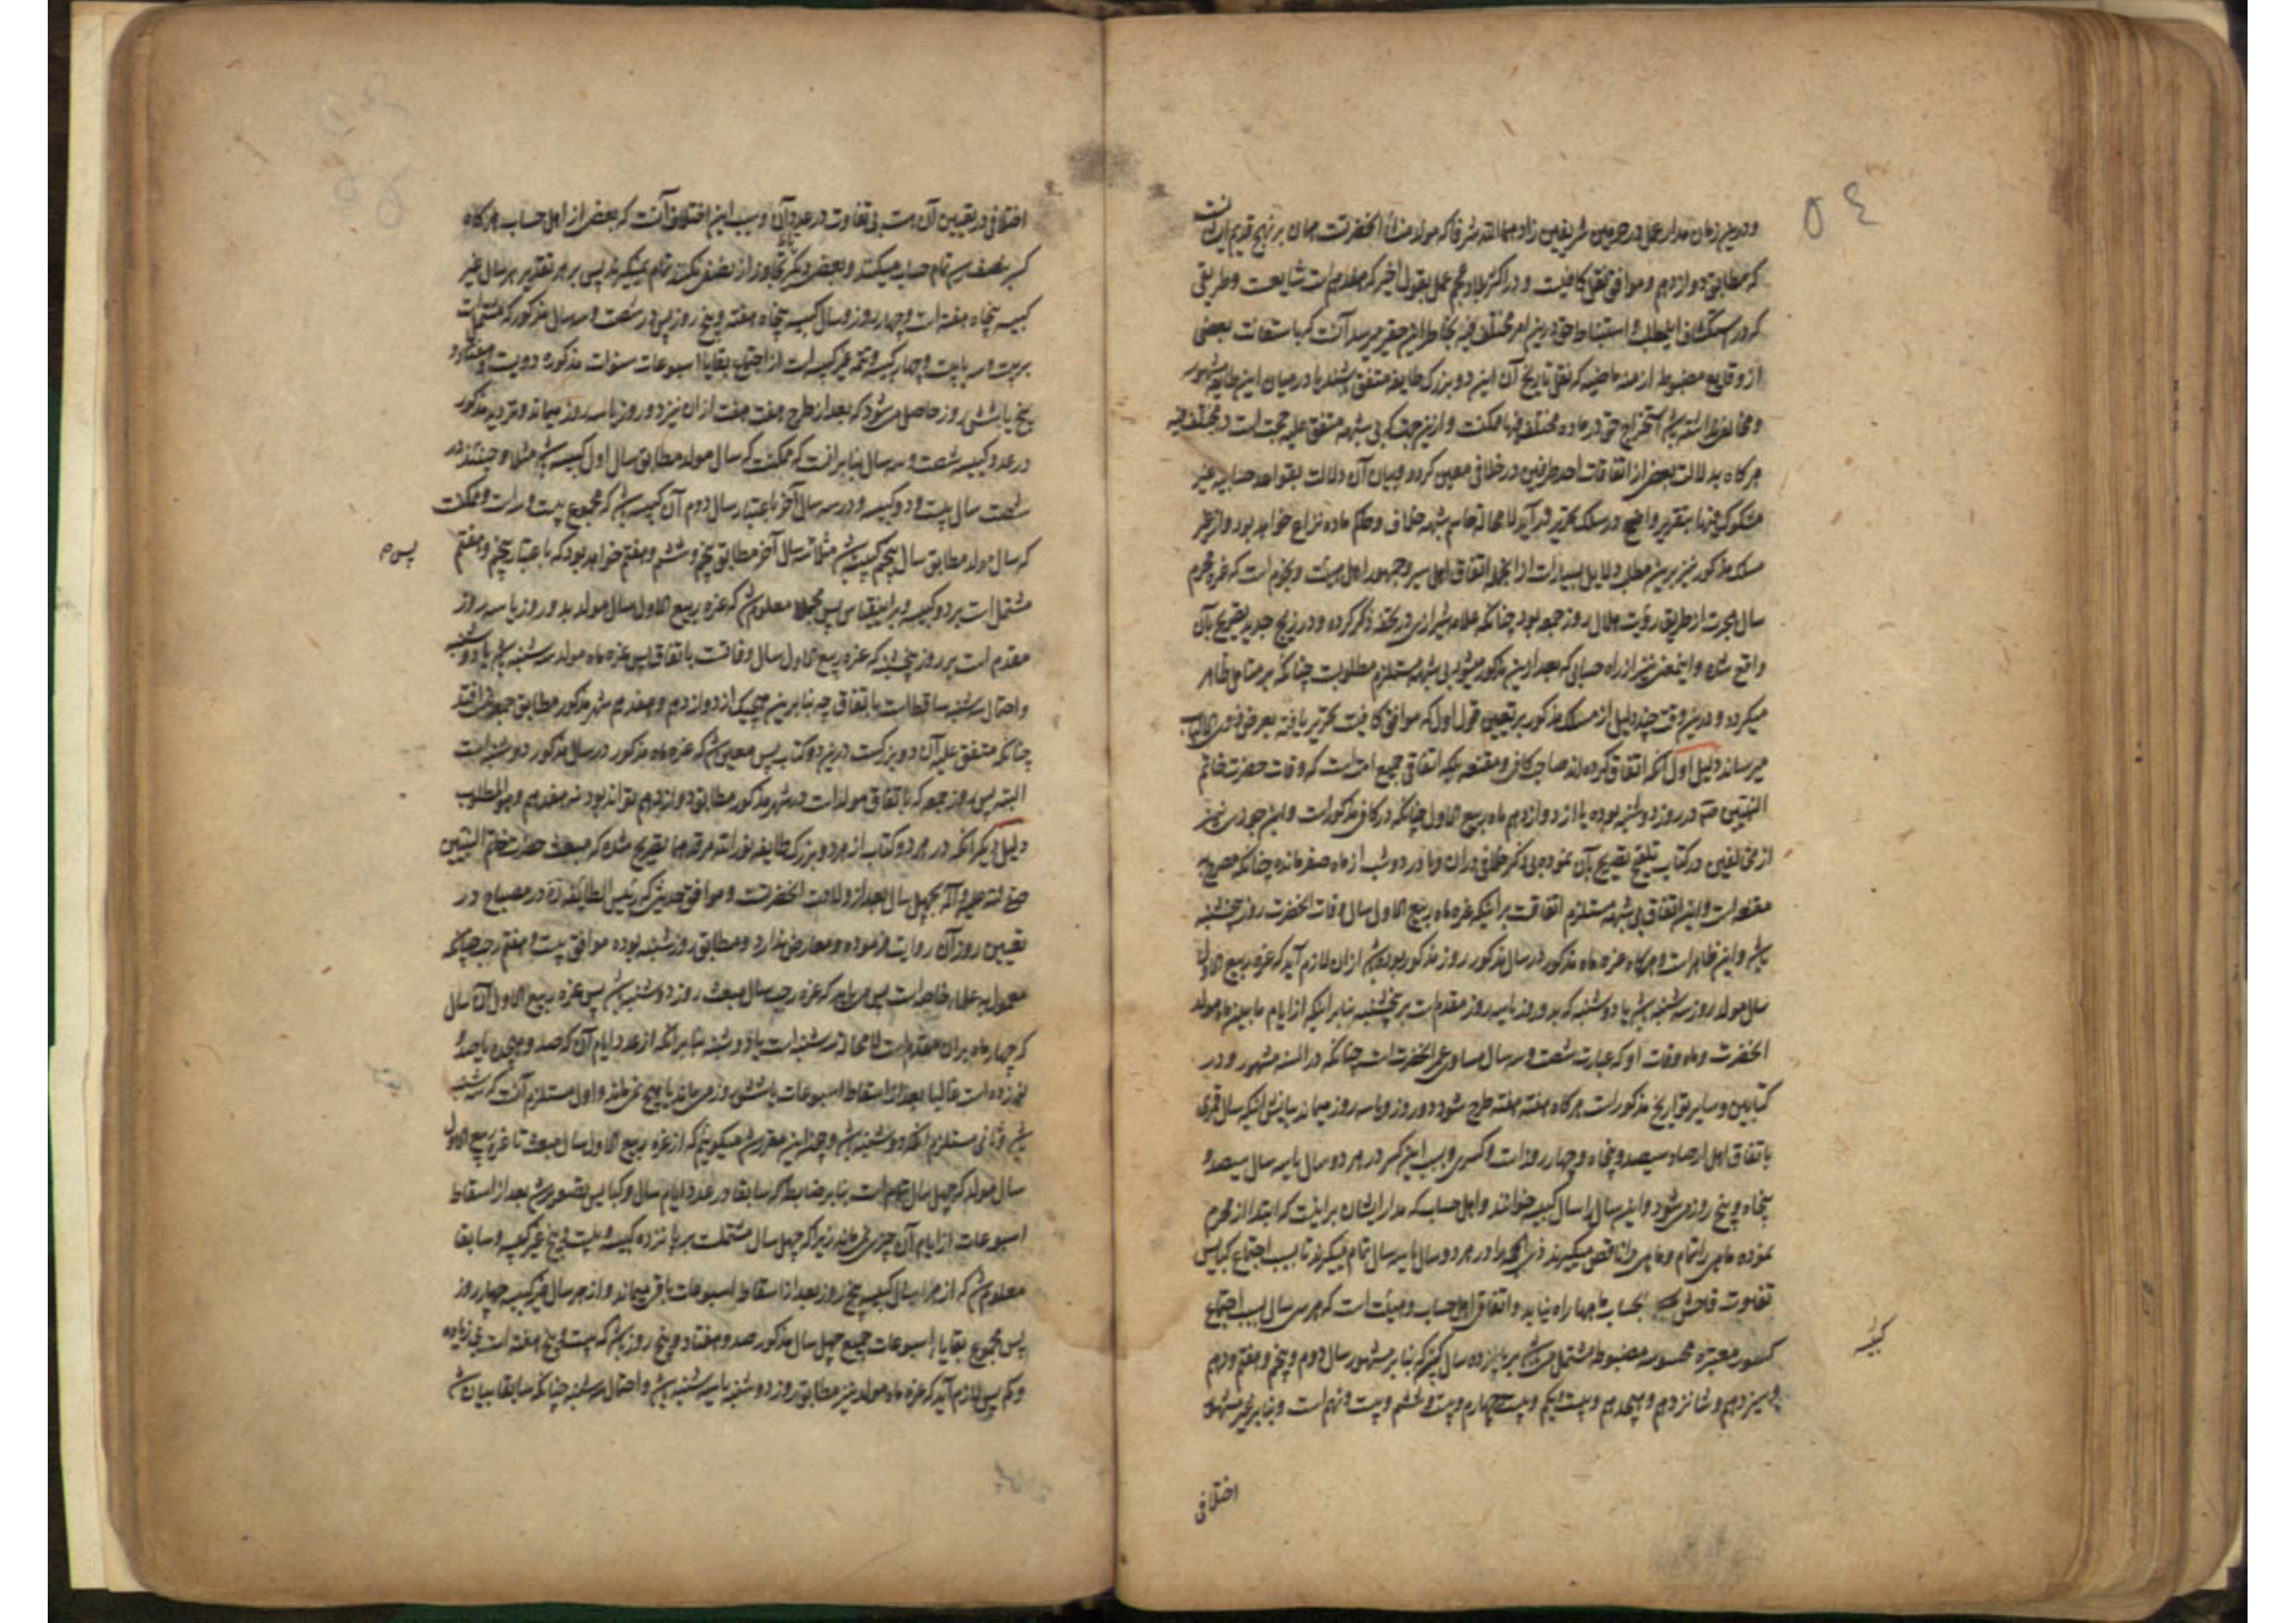 ٥٤
و درین زمان مدار عمل در حرمین شریفین زادهما الله شرفا که مولد و منشأ آنحضرتست همان بر نهج قدیم ایشان است
که مطابق دوازدهم و موافق نقل کافیست و در اکثر بلاد عجم عمل بقول اخیر که هفدهم است شایعست و طریقی
که در استکشاف این مطلب و استنباط حق درین امر مختلف فیه بخاطر این حقیر میرسد آنست که باستعانت بعضی
از وقایع مضبوط ازمنه ماضیه که نقل تاریخ آن این دو بزرگ طایفه متفق باشند یا در میان این طایفه مشهور
و مخالفی نداشته باشد استخراج حق در ماده مختلف فیها ممکنست و ازین جهت که بی شبهه متفق علیه حجت است در مختلف فیه
هرگاه بدلالت بعضی از اتفاقات احد طرفین در خلافی معین گردد و بیان آن دلالت بقواعد حسابیه غیر
مشکوک فیها بتقریر واضح در سلک تحریر درآید لا محاله حاسم شبهه خلاف و حکم ماده نزاع خواهد بود و از طرز
مسلک مذکور نیز برین مطلب دلایل بسیار است از آنجمله اتفاق اهل سیر و جمهور اهل هیئت و نجوم است که غره محرم
سال هجرت از طریق رؤیت هلال روز جمعه بود چنانکه علامه شیرازی در تحفه ذکر کرده و در زیج جدید تصریح بآن
واقع شده و اینمعنی نیز از راه حسابی که بعد ازین مذکور میشود بی شبهه مستلزم مطلوبست چنانکه بر متامل ظاهر
میگردد و درینوقت چند دلیل از مسلک مذکور بر تعیین قول اول که موافق کافیست تحریر یافته بعرض ذوی الالباب
میرساند دلیل اول آنکه اتفاق کرده‌اند صاحب کافی و مقنعه بلکه اتفاقی جمیع امت است که وفات حضرت خاتم
النبیین ص در روز دوشنبه بوده یا از دوازدهم ماه ربیع الاول چنانکه در کافی مذکور است و ابن جوزی نیز
از مخالفین در کتاب تلقیح تصریح بآن نموده بی ذکر خلافی در آن و یا در دو شب از ماه صفر مانده چنانکه مصرح به
مقنعه است و این اتفاق بی شبهه مستلزم اتفاقست بر اینکه غره ماه ربیع الاول سال وفات آنحضرت روز پنجشنبه
باشد و این ظاهر است و هرگاه غره ماه مذکور در سال مذکور روز مذکور بوده باشد از آن لازم آید که غره ربیع الاول
سال مولد روز سه شنبه باشد یا دوشنبه که بدو روز یا سه روز مقدم است بر پنجشنبه بنابر اینکه از ایام ما بین ماه مولد
آنحضرت و ماه وفات او که عبارت شصت و سه سال مساوی عمر آنحضرت است چنانکه در السنه مشهور و در
کتابین و سایر تواریخ مذکور است هرگاه هفته هفته طرح شود دو روز و یا سه روز میماند بیانش آنکه سال قمری
باتفاق اهل ارصاد سیصد و پنجاه و چهار روز است و کسری و بسبب این کسر در هر دو سال یا سه سال سیصد و
پنجاه و پنج روز میشود و این سال را سال کبیسه خوانند و اهل حساب که مدار ایشان بر اینست که ابتدا از محرم
نموده ماهی را تمام و ماهی را ناقص میگیرند ذی الحجه را در هر دو سال یا سه سال تمام میگیرند تا بسبب اجتماع کبایس
تفاوت فاحش بحساب ماهها راه نیابد و اتفاق اهل حساب و هیئت است که هر سی سال بسبب اجتماع
کسور معتبره محسوسه مضبوطه مشتمل میباشد بر یازده سال کبیسه که بنابر مشهور سال دوم و پنجم و هفتم و دهم
و سیزدهم و شانزدهم و هیجدهم و بیست و یکم و بیست و چهارم و بیست و ششم و بیست و نهم است و بنابر غیر مشهور
اختلافی
اختلافی در تعیین آن هست بی تفاوت در عدد آن و سبب این اختلاف آنست که بعضی از اهل حساب هرگاه
کسر بنصف رسد تمام حساب میکنند و بعضی دیگر تا تجاوز از نصف نکند تمام نمیگیرند پس بر هر تقدیر هر سال غیر
کبیسه پنجاه هفته است و چهار روز و سال کبیسه پنجاه هفته و پنج روز پس در شصت و سه سال مذکور که مشتمل است
بر بیست و سه یا بیست و چهار کبیسه و تتمه غیر کبیسه است از اجتماع بقایا اسبوعات سنوات مذکوره دویست و هفتاد و
پنج یا شش روز حاصل میشود که بعد از طرح هفت هفت از آن نیز دو روز یا سه روز میماند و تردید مذکور
در عدد کبیسه شصت و سه سال بنابر آنست که ممکنست که سال مولد مطابق سال اول کبیسه باشد مثلا و حینئذ در
شصت سال بیست و دو کبیسه و در سه سال آخر باعتبار سال دوم آن کبیسه باشد که مجموع بیست و سه است و ممکنست
که سال مولد مطابق سال پنجم کبیسه باشد مثلا سه سال آخر مطابق پنجم و ششم و هفتم خواهد بود که باعتبار پنجم و هفتم
مشتمل است بر دو کبیسه و بر اینقیاس پس مجملا معلوم شد که غره ربیع الاول سال مولد بدو روز یا سه روز
مقدم است بر روز پنجشنبه که غره ربیع الاول سال وفاتست باتفاق پس غره ماه مولد سه شنبه باشد یا دوشنبه
و احتمال سه شنبه ساقط است باتفاق چه بنابرین هیچیک از دوازدهم و هفدهم شهر مذکور مطابق جمعه نمی افتد
چنانکه متفق علیه آن دو بزرگست درین دو کتاب پس معین شد که غره ماه مذکور در سال مذکور دوشنبه است
البته پس روز جمعه که باتفاق مولد است در شهر مذکور مطابق دوازدهم تواند بود نه هفدهم و هو المطلوب
دلیل دیگر آنکه در هر دو کتاب از هر دو بزرگ طایفه نور الله مرقدهما تصریح شده که مبعث حضرت خاتم النبیین
صلی الله علیه و آله بچهل سال بعد از ولادت آنحضرتست و موافق حدیثی که رئیس الطایفه ره در مصباح در
تعیین روز آن روایت فرموده و معارضی ندارد و مطابق روز شنبه بوده موافق بیست و هفتم رجب چنانکه
معمول به علماء خاصه است پس میباید که غره رجب سال مبعث روز دوشنبه باشد پس غره ربیع الاول آن سال
که چهار ماه بر آن مقدم است لا محاله سه شنبه است یا دوشنبه بنابر آنکه از عدد ایام آن که صد و هیجده یا صد و
نوزده است غالبا بعد از اسقاط اسبوعات یا شش روز میماند یا هیچ نمی ماند و اول مستلزم آنست که سه شنبه
باشد و ثانی مستلزم آنکه دوشنبه باشد و چون این مقرر شد میگوییم که از غره ربیع الاول سال مبعث تا غره ربیع الاول
سال مولد که چهل سال تمام است بنابر ضابطه که سابقا در عدد ایام سال و کبایس تصویر شد بعد از اسقاط
اسبوعات از ایام آن چیزی نمی ماند زیرا که چهل سال مشتملست بر پانزده کبیسه و بیست و پنج غیر کبیسه و سابقا
معلوم شد که از هر سال کبیسه پنج روز بعد از اسقاط اسبوعات باقی میماند و از هر سال غیر کبیسه چهار روز
پس مجموع بقایا اسبوعات جمیع چهل سال مذکور صد و هفتاد و پنج روز باشد که بیست و پنج هفته است بی زیاده
و کم پس لازم آید که غره ماه مولد نیز مطابق روز دوشنبه یا سه شنبه باشد و احتمال سه شنبه چنانکه سابقا بیان شد